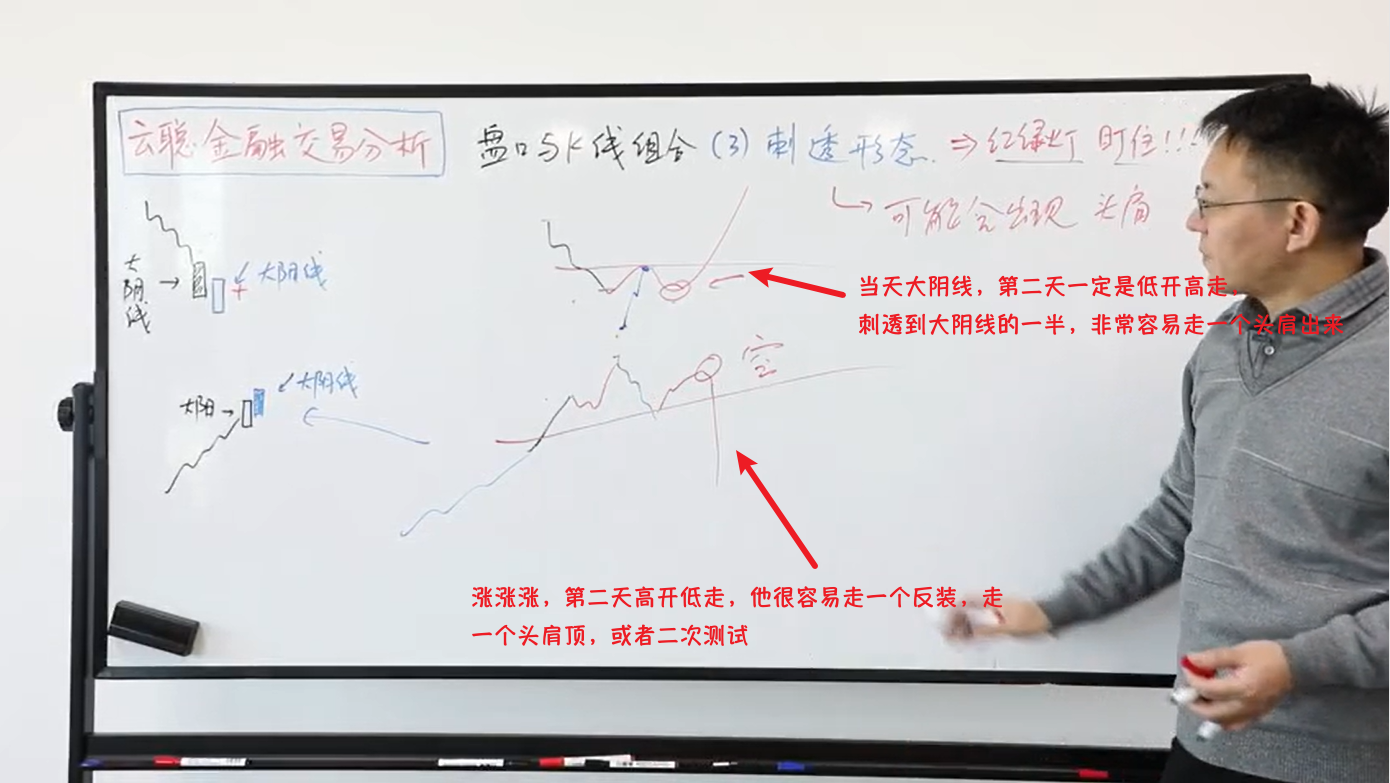 云聪金融交易分析
盘口与K线组合(3)刺透形态 ⇒ 红绿灯 盯住!!!
可能会出现 头肩
大阴线
大阳线
当天大阴线，第二天一定是低开高走，
刺透到大阴线的一半，非常容易走一个头肩出来
空
大阴线
大阳
涨涨涨，第二天高开低走，他很容易走一个反装，走
一个头肩顶，或者二次测试